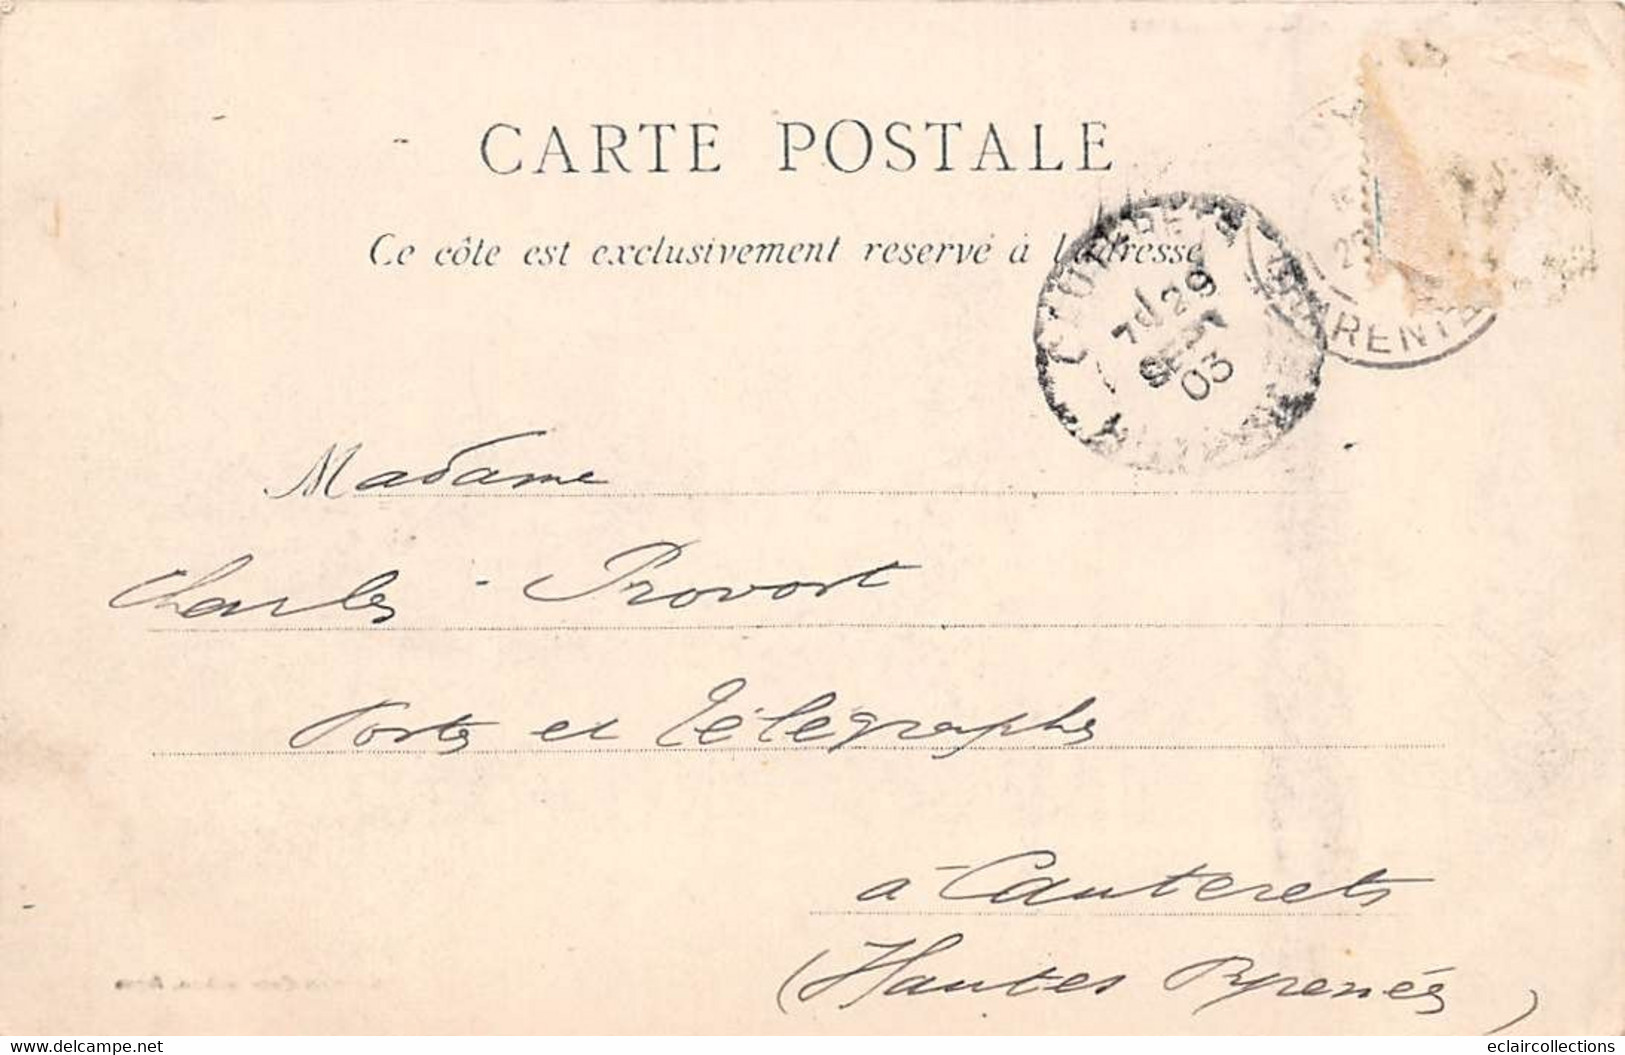 CARTE POSTALE
Ce côte est exclusivement reservé à l'adresse
CAUTERETS
7 29
SEPT
03
CHARENTE
Madame
Charles - Provost
Postes et Télégraphes
à Cauterets
(Hautes Pyrenées)
www.delcampe.net
eclaircollections